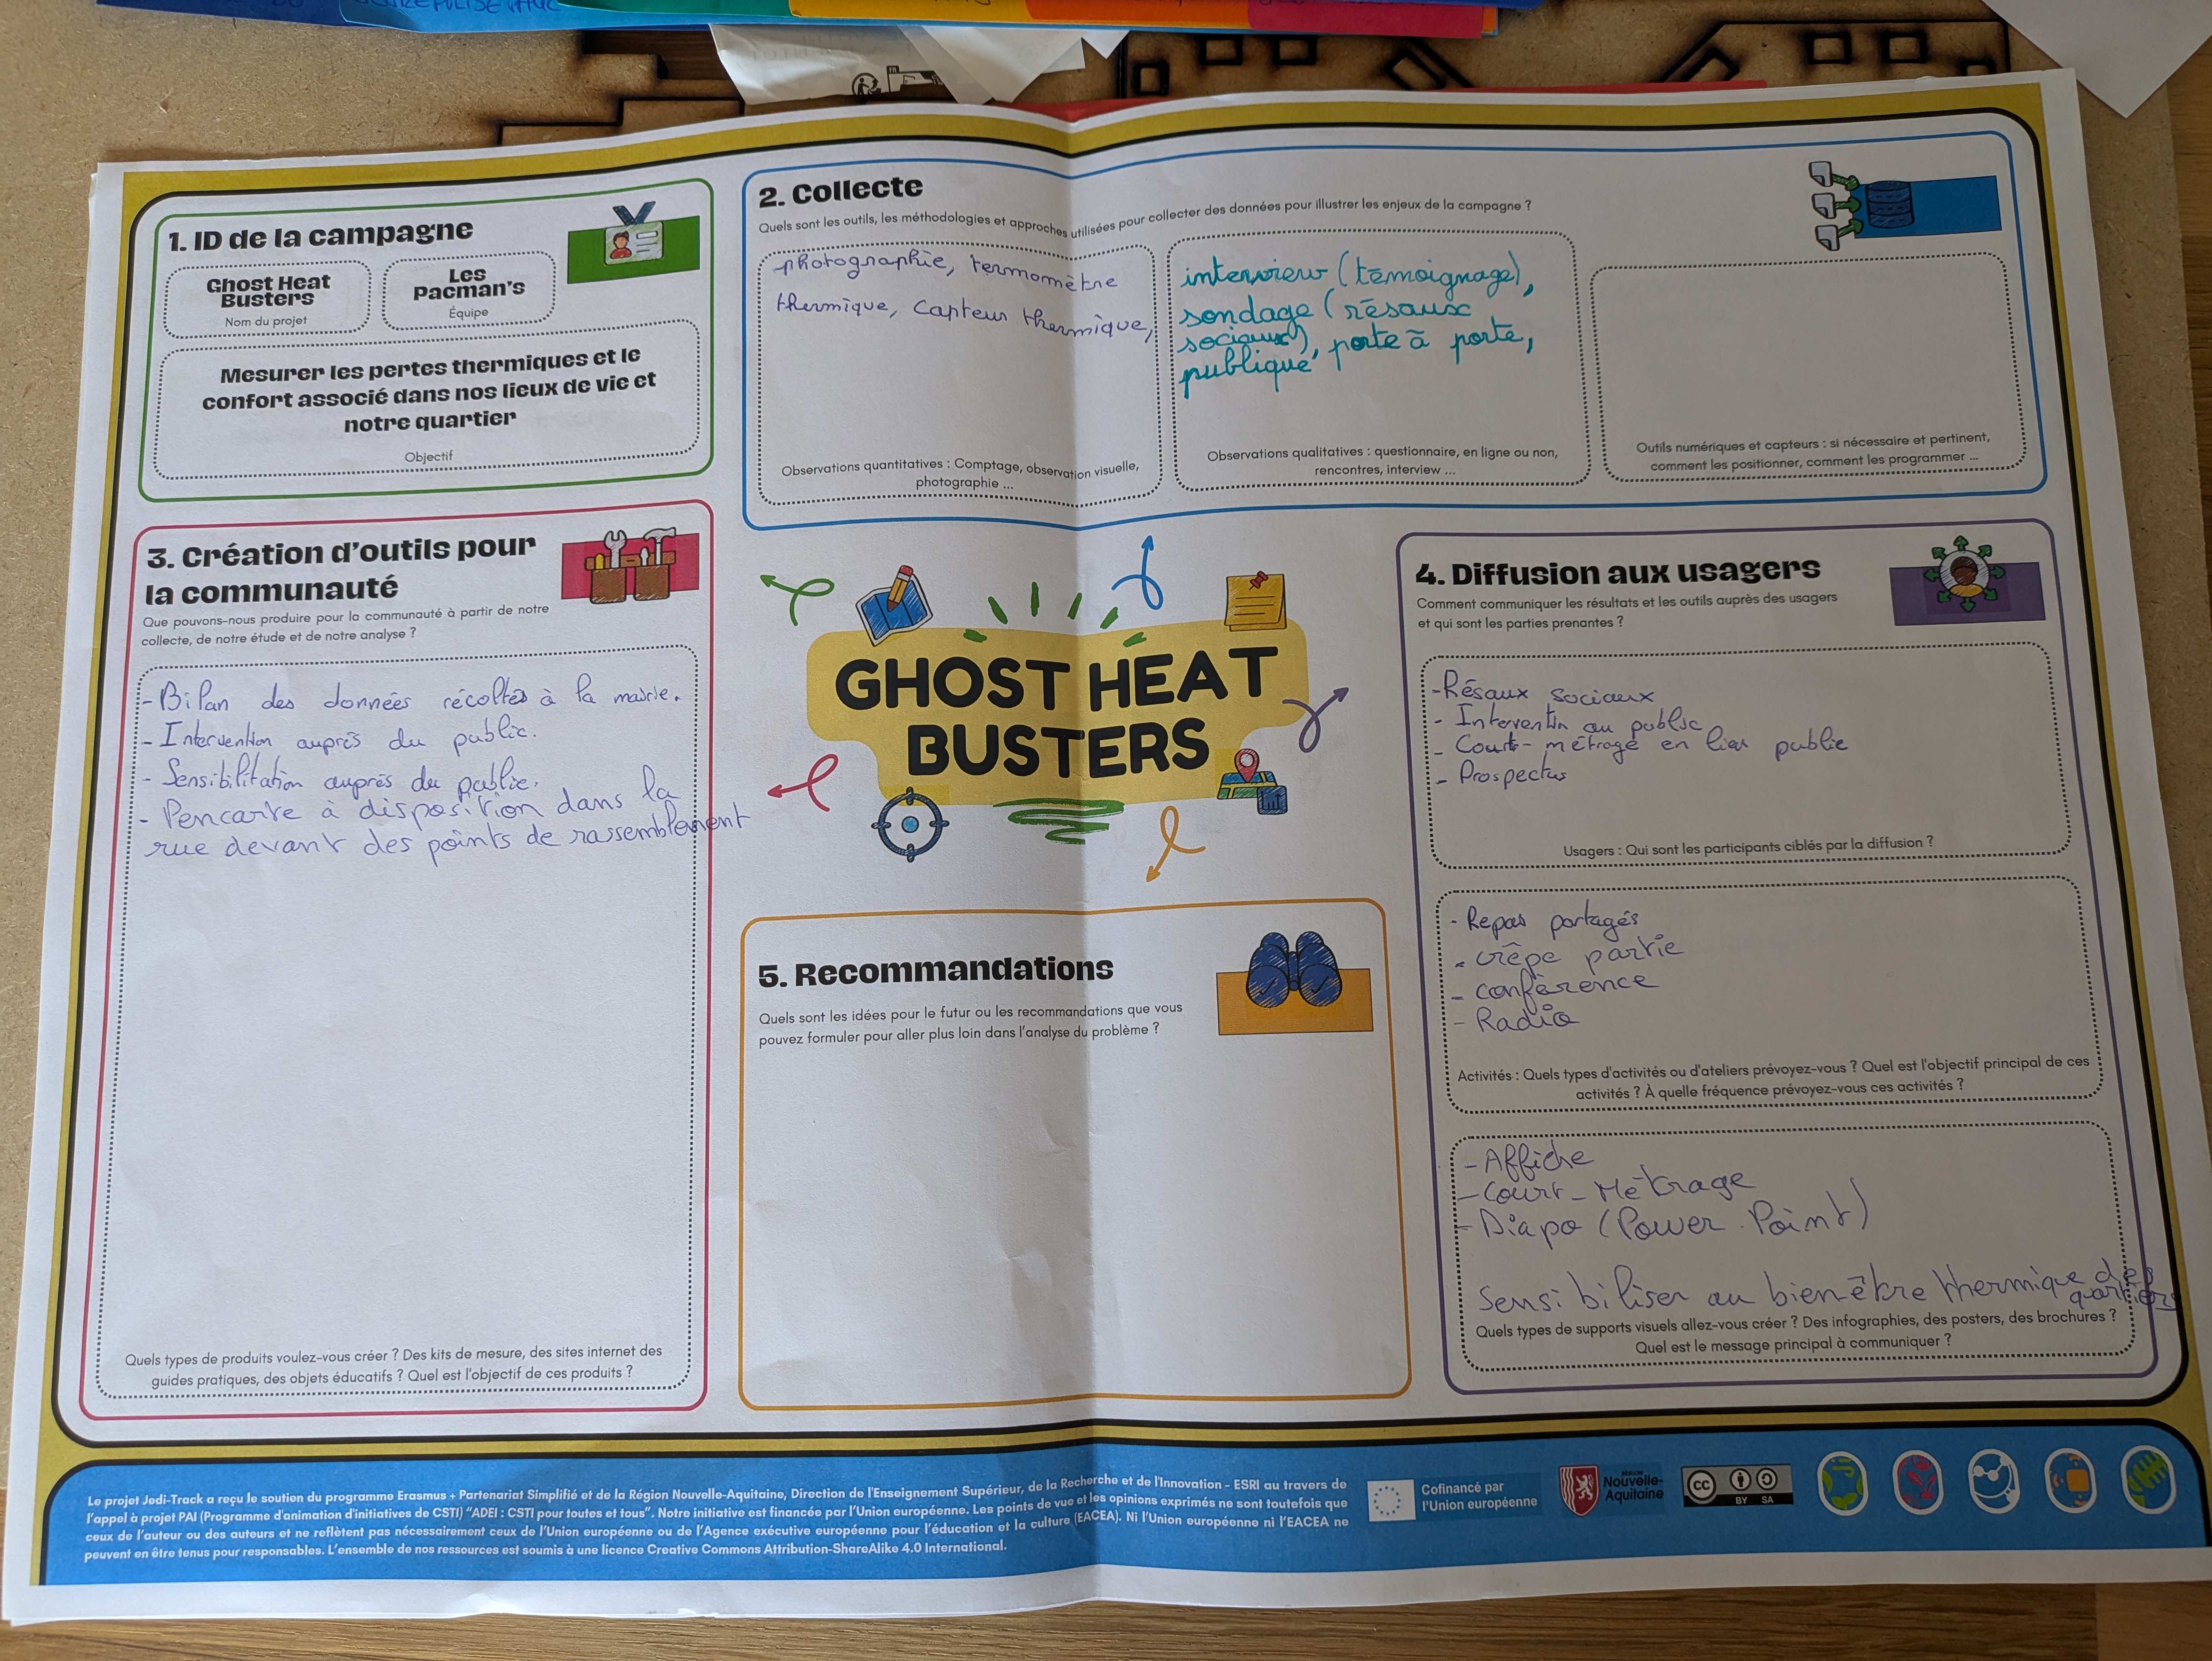 1. ID de la campagne
Ghost Heat
Busters
Nom du projet
Les
Pacman's
Équipe
Mesurer les pertes thermiques et le
confort associé dans nos lieux de vie et
notre quartier
Objectif
2. Collecte
Quels sont les outils, les méthodologies et approches utilisées pour collecter des données pour illustrer les enjeux de la campagne ?
photographie, termomètre
thermique, capteur thermique,
Observations quantitatives : Comptage, observation visuelle,
photographie ...
interview (témoignage),
sondage (résaux
sociaux), porte à porte,
publique
Observations qualitatives : questionnaire, en ligne ou non,
rencontres, interview ...
Outils numériques et capteurs : si nécessaire et pertinent,
comment les positionner, comment les programmer ...
3. Création d'outils pour
la communauté
Que pouvons-nous produire pour la communauté à partir de notre
collecte, de notre étude et de notre analyse ?
- Bilan des données récoltés à la mairie.
- Intervention auprés du public.
- Sensibilitation auprés du public.
- Pencarte à disposition dans la
rue devant des points de rassemblement
Quels types de produits voulez-vous créer ? Des kits de mesure, des sites internet des
guides pratiques, des objets éducatifs ? Quel est l'objectif de ces produits ?
GHOST HEAT
BUSTERS
4. Diffusion aux usagers
Comment communiquer les résultats et les outils auprès des usagers
et qui sont les parties prenantes ?
- Résaux sociaux
- Interventin au public
- Court-métrage en lieu public
- Prospectus
Usagers : Qui sont les participants ciblés par la diffusion ?
- Repas partagés
- crêpe partie
- conférence
- Radio
Activités : Quels types d'activités ou d'ateliers prévoyez-vous ? Quel est l'objectif principal de ces
activités ? À quelle fréquence prévoyez-vous ces activités ?
- Affiche
- Court-Métrage
- Diapo (Power Point)
Sensibiliser au bien-être thermique des
quartiers
Quels types de supports visuels allez-vous créer ? Des infographies, des posters, des brochures ?
Quel est le message principal à communiquer ?
5. Recommandations
Quels sont les idées pour le futur ou les recommandations que vous
pouvez formuler pour aller plus loin dans l'analyse du problème ?
Le projet Jedi-Track a reçu le soutien du programme Erasmus + Partenariat Simplifié et de la Région Nouvelle-Aquitaine, Direction de l'Enseignement Supérieur, de la Recherche et de l'Innovation - ESRI au travers de
l'appel à projet PAI (Programme d'animation d'initiatives de CSTI) "ADEI : CSTI pour toutes et tous". Notre initiative est financée par l'Union européenne. Les points de vue et les opinions exprimés ne sont toutefois que
ceux de l'auteur ou des auteurs et ne reflètent pas nécessairement ceux de l'Union européenne ou de l'Agence exécutive européenne pour l'éducation et la culture (EACEA). Ni l'Union européenne ni l'EACEA ne
peuvent en être tenus pour responsables. L'ensemble de nos ressources est soumis à une licence Creative Commons Attribution-ShareAlike 4.0 International.
Cofinancé par
l'Union européenne
RÉGION
Nouvelle-
Aquitaine
CC
BY SA